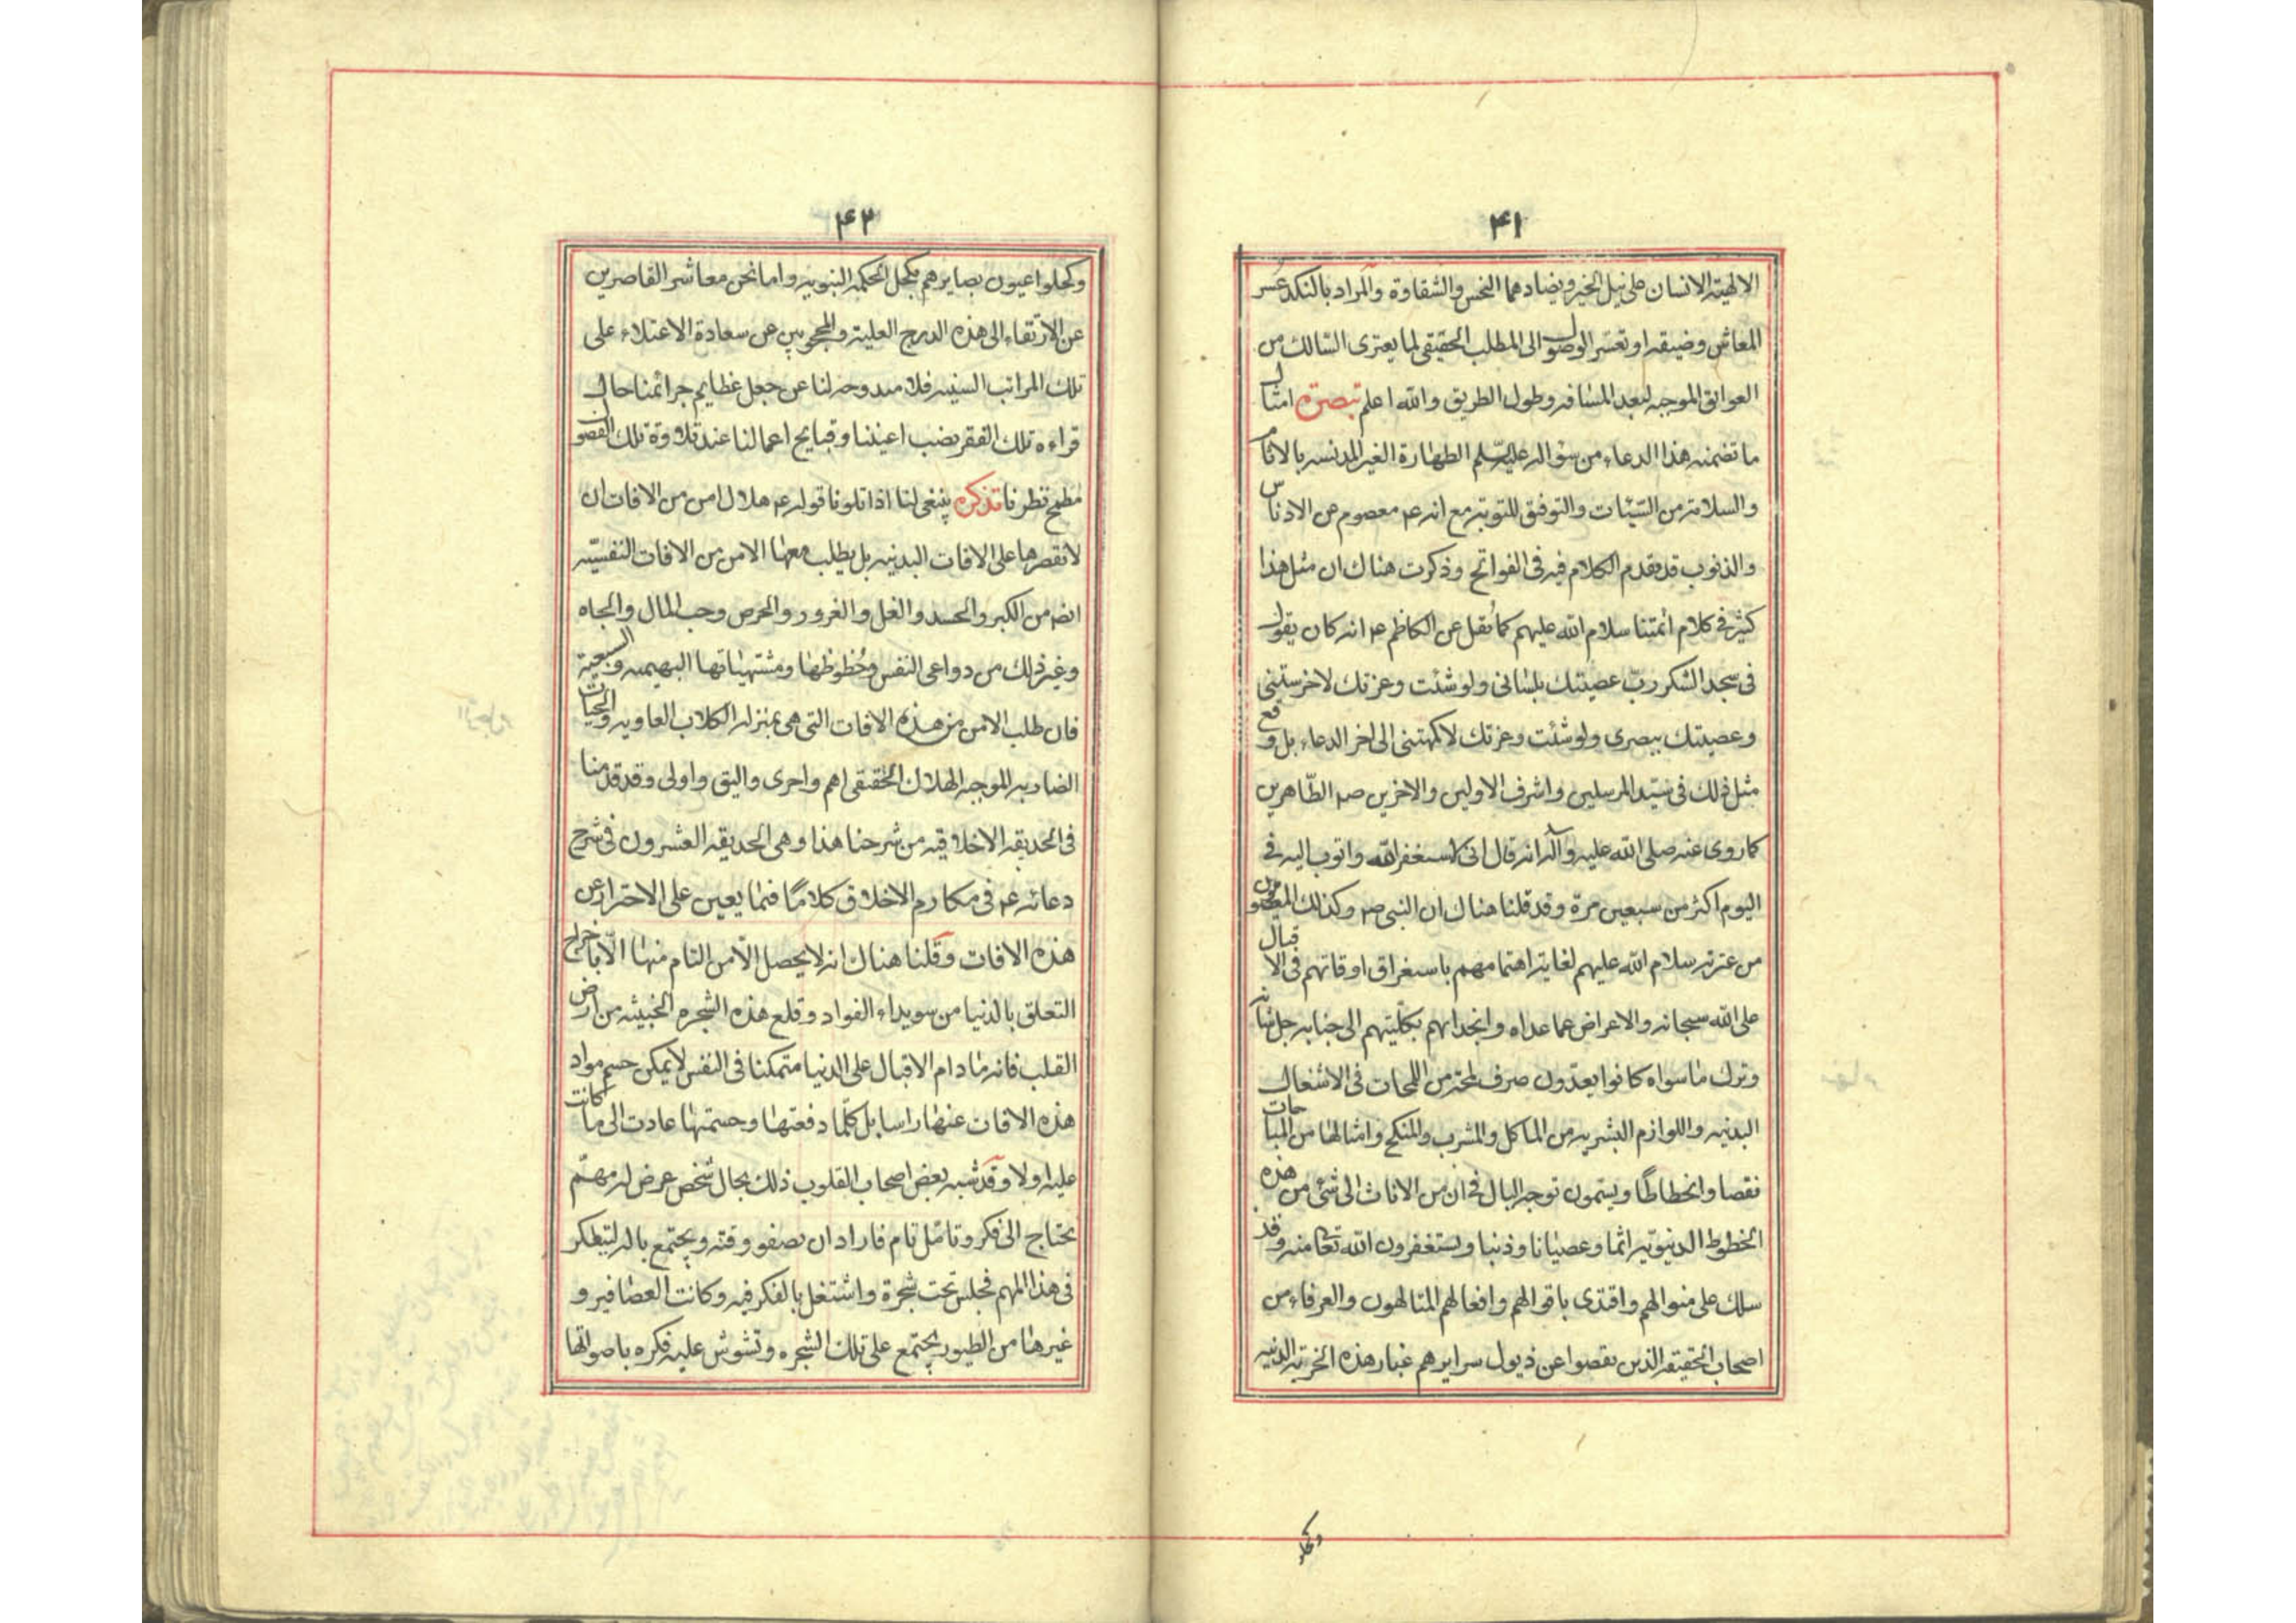 ۴۱
الالهیة الانسان علی نیل الخیر ویضادهما النحس والشقاوة والمراد بالنکد عسر
المعاش وضیقه او تعسّر الوصول الی المطلب الحقیقی لما یعتری السّالک من
العوائق الموجبه لبعد المسافه وطول الطریق والله اعلم تبصره امثال
ما تضمنه هذا الدعاء من سؤاله علیه السلم الطهارة الغیر المدنسه بالاثام
والسلامة من السّیئات والتوفیق للتوبة مع انه ع معصوم عن الادناس
والذنوب قد یقدم الکلام فیه فی الفواتح وذکرت هناک ان مثل هذا
کثیر فی کلام ائمتنا سلام الله علیهم کما نُقل عن الکاظم ع انه کان یقول
فی سجدة الشکر ربّ عصیتک بلسانی ولو شئت وعزتک لاخرستنی
وعصیتک ببصری ولو شئت وعزتک لاکمهتنی الی اخر الدعاء بل وقع
مثل ذلک فی سیّد المرسلین واشرف الاولین والاخرین ص الطّاهرین
کما روی عنه صلی الله علیه وآله انه قال انی لاستغفر الله واتوب الیه فی
الیوم اکثر من سبعین مرّة وقد قلنا هناک ان النبی ص وکذلک المعصومین
من عترته سلام الله علیهم لغایة اهتمامهم باستغراق اوقاتهم فی الاقبال
علی الله سبحانه والاعراض عما عداه وانجذابهم بکلّیتهم الی جنابه جل شانه
وترک ما سواه کانوا یعدّون صرف لمحة من اللمحات فی الاشغال
البدنیه واللوازم البشریه من الماکل والمشرب والمنکح وامثالها من المباحات
نقصا وانحطاطًا ویسّمون توجه البال فی ان من الانات الی شئ من هذه
الحظوظ الدنیویّه اثما وعصیانا وذنبا ویستغفرون الله تعا منه وقد
سلک علی منوالهم واقتدی باقوالهم وافعالهم المتالهون والعرفاء من
اصحاب الحقیقه الذین نفضوا عن ذیول سرایرهم غبار هذه الخربة الدنیه
وکحلو
۴۲
وکحلوا عیون بصایرهم بکحل الحکمه النبویه واما نحن معاشر القاصرین
عن الارتقاء الی هذه الدرج العلیة والمحجوبین عن سعادة الاعتلاء علی
تلک المراتب السنیه فلا مندوحه لنا عن جعل عظایم جرائمنا حال
قراءه تلک الفقر نصب اعیننا وقبایح اعمالنا عند تلاوة تلک الفصول
مطمح نظرنا تذکره ینبغی لنا اذا تلونا قوله ع هلال امن من الافات ان
لا نقصرها علی الافات البدنیه بل یطلب معها الامن من الافات النفسیّه
ایضه من الکبر والحسد والغل والغرور والحرص وحب المال والجاه
وغیر ذلک من دواعی النفس وحُظوظها ومشتهیاتها البهیمیه والسبعیة
فان طلب الامن من هذه الافات التی هی بمنزله الکلاب العاویه والحیات
الضاریه الموجبه الهلاک الحقیقی اهم واحری والیق واولی وقد قدمنا
فی الحدیقه الاخلاقیه من شرحنا هذا وهی الحدیقه العشرون فی شرح
دعائه ع فی مکارم الاخلاق کلامًا فیما یعین علی الاحتراز عن
هذه الافات وقلنا هناک انه لا یحصل الأمن التام منها الّا باخراج
التعلق بالدنیا من سویداء الفواد وقلع هذه الشجره الخبیثه من ارض
القلب فانه ما دام الاقبال علی الدنیا متمکنا فی النفس لا یمکن حسم مواد
هذه الافات عنها راسا بل کلّما دفعتها وحسمتها عادت الی ما کانت
علیه اولا وقد شبه بعض اصحاب القلوب ذلک بحال شخص عرض له مهمّ
یحتاج الی فکر وتامّل تام فاراد ان یصفو وقته ویجتمع باله لیتفکر
فی هذا المهم فجلس تحت شجرة واشتغل بالفکر فیه وکانت العصافیر و
غیرها من الطیور یجتمع علی تلک الشجره وتشوش علیه فکره باصواتها